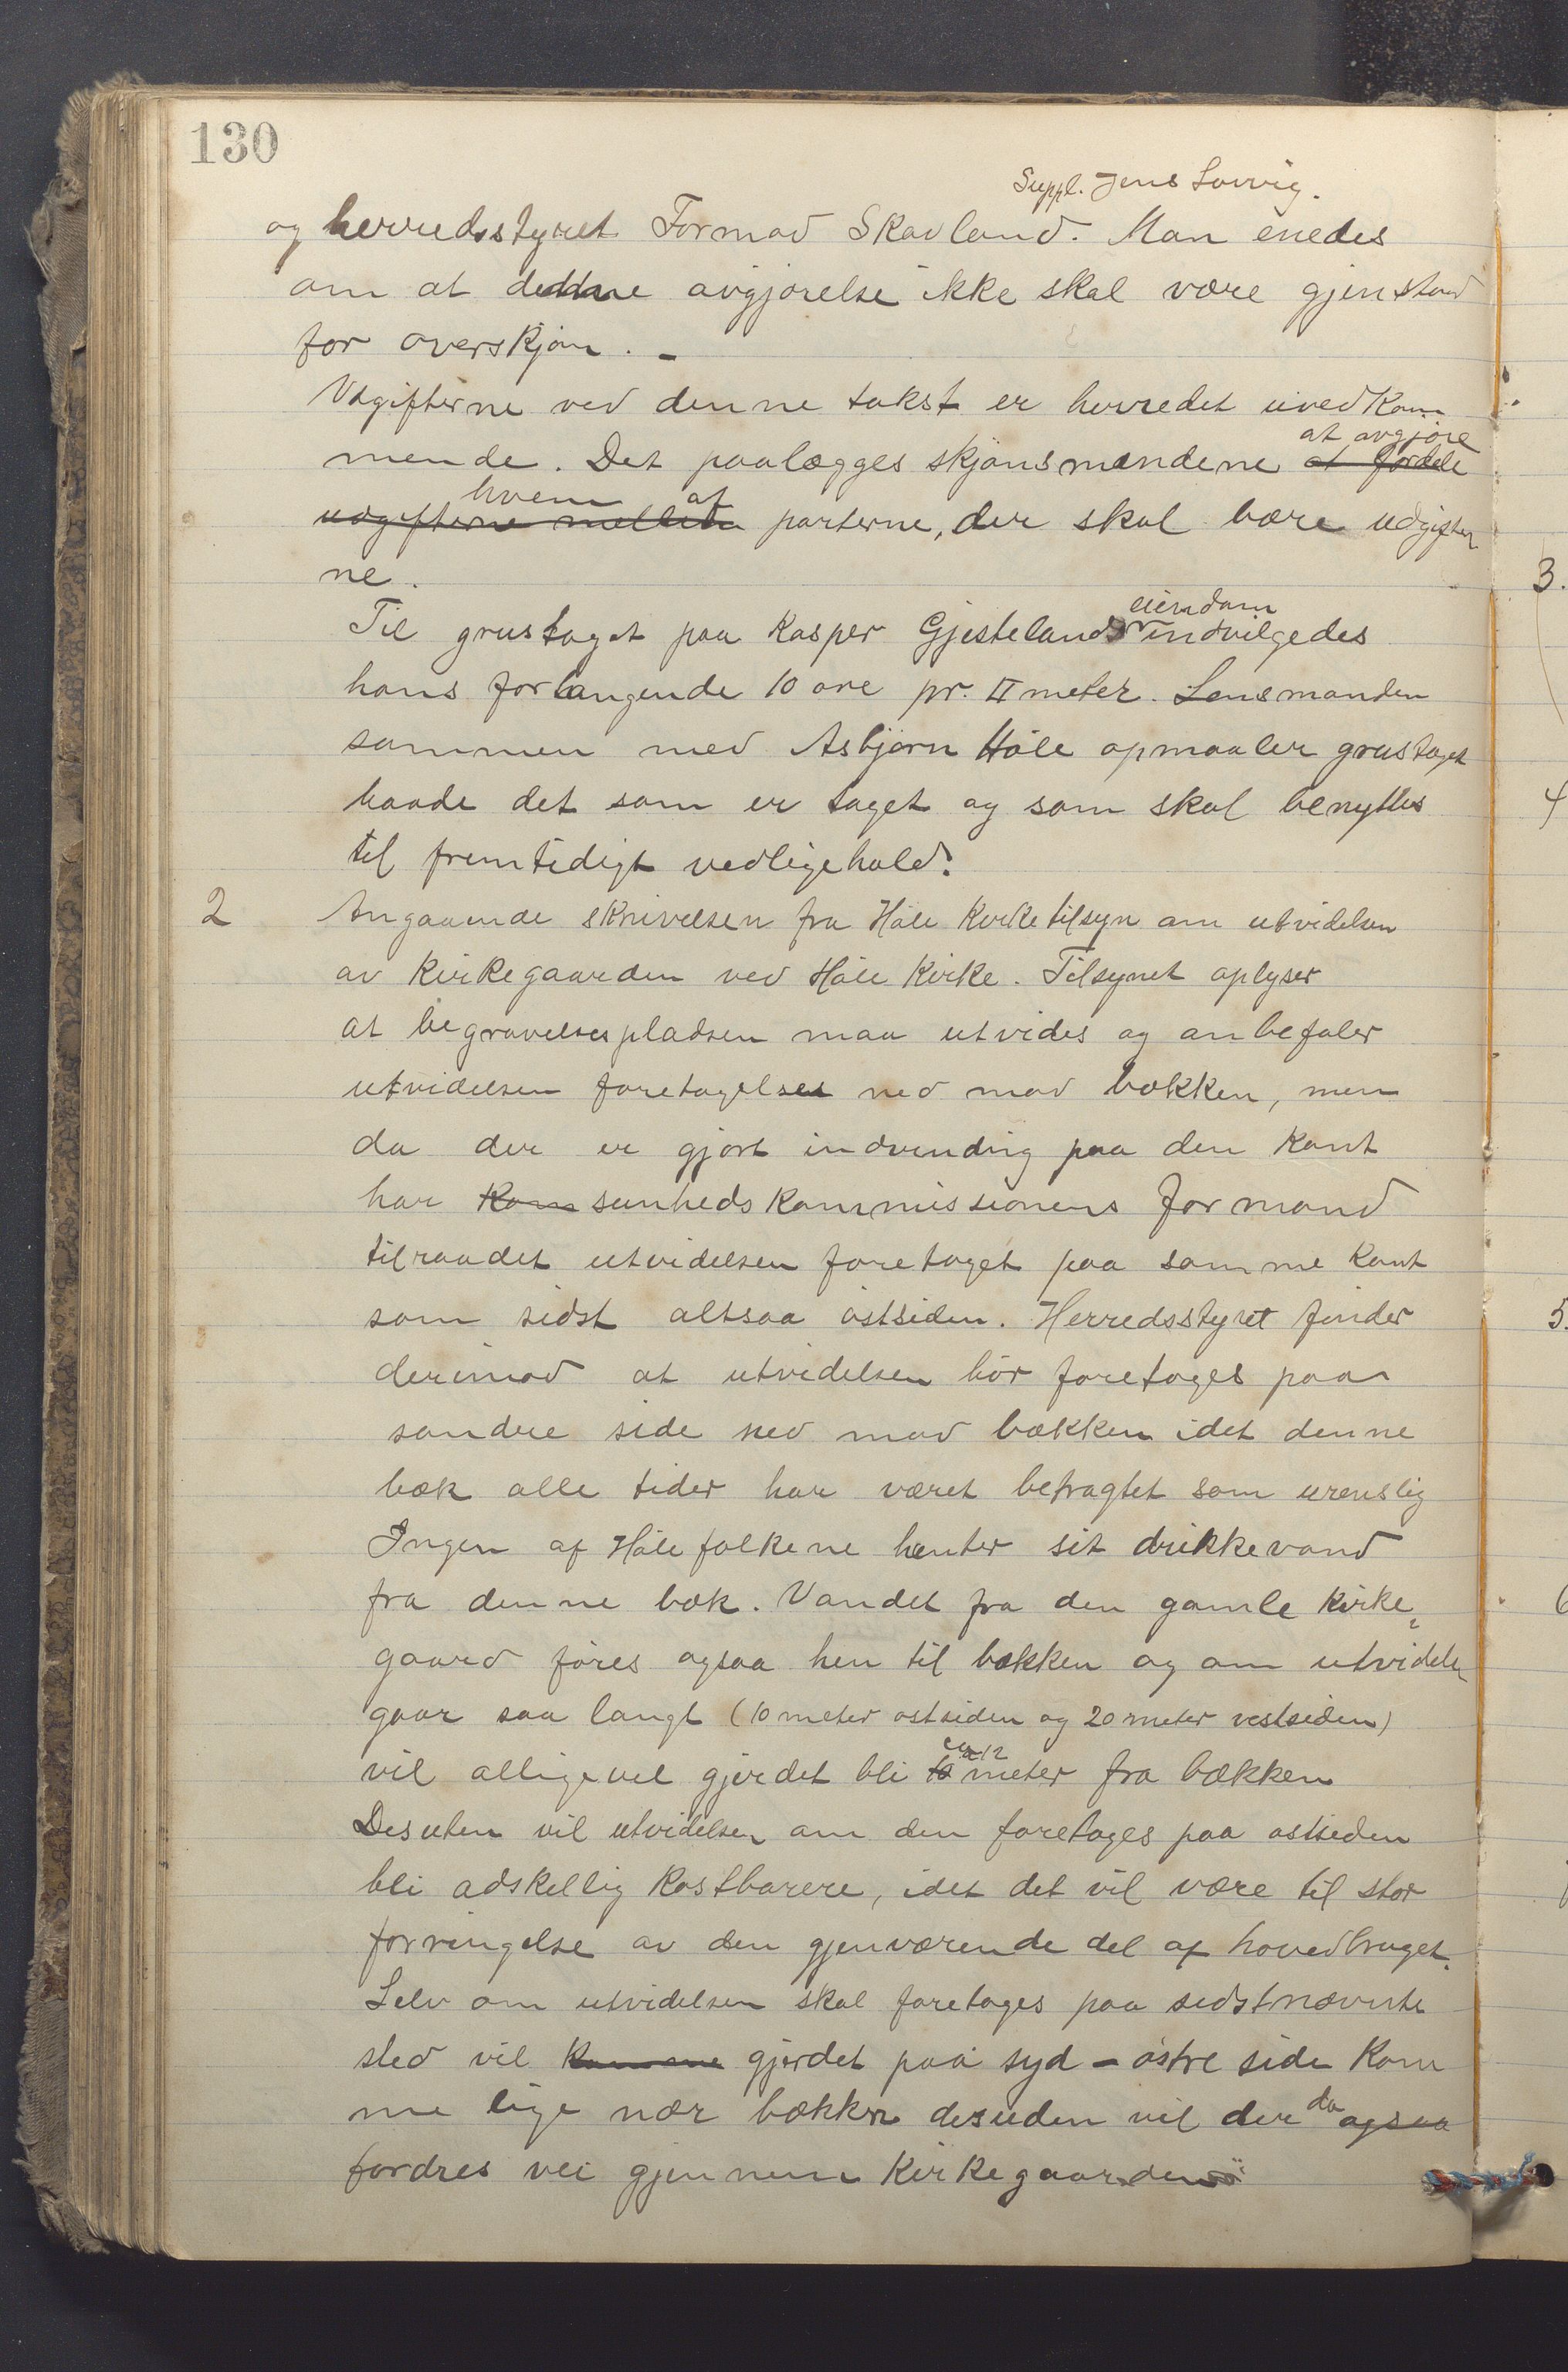 130
Suppl. Jens Lovvig.
og herredsstyret Tormod Skavland. Man enedes
om at denne avgjørelse ikke skal være gjenstand
for overskjøn. -
Udgifterne ved denne takst er herredet uvedkom
at avgjøre
mende. Det paalægges skjønsmændene at fordele
hvem af
udgifterne mellem parterne, der skal bære udgifter
ne.
eiendom
Til grustaget paa Kasper Gjestelands indvilgedes
hans forlangende 10 øre pr. □ meter. Lensmanden
sammen med Asbjørn Høle opmaaler grustaget
baade det som er taget og som skal benyttes
til fremtidigt vedligehold.
2 Angaaende skrivelsen fra Høle Kirketilsyn om utvidelsen
av Kirkegaarden ved Høle Kirke. Tilsynet oplyser
at begravelsespladsen maa utvides og anbefaler
utvidelsen foretagelses ned mod bækken, men
da der er gjort indvending paa den kant
har Kom sunhedskommissionens formand
tilraadet utvidelsen foretaget paa samme kant
som sidst altsaa østsiden. Herredsstyret finder
derimod at utvidelsen bør foretages paa
søndre side ned mod bækken idet denne
bæk alle tider har været betragtet som urenslig
Ingen af Hølefolkene henter sit drikkevand
fra denne bæk. Vandet fra den gamle Kirke-
gaard føres ogsaa hen til bækken og om utvidelsen
gaar saa langt (10 meter østsiden og 20 meter vestsiden)
ca 12
vil alligevel gjerdet bli 10 meter fra bækken
Desuten vil utvidelsen om den foretages paa østsiden
bli adskellig kostbarere, idet det vil være til stor
forringelse av den gjenværende del af hovedbruget.
Selv om utvidelsen skal foretages paa sidstnævnte
sted vil komme gjerdet paa syd - østre side kom
da
me lige nær bækken desuden vil der ogsaa
fordres vei gjennem Kirkegaarden
3.
4
5.
6